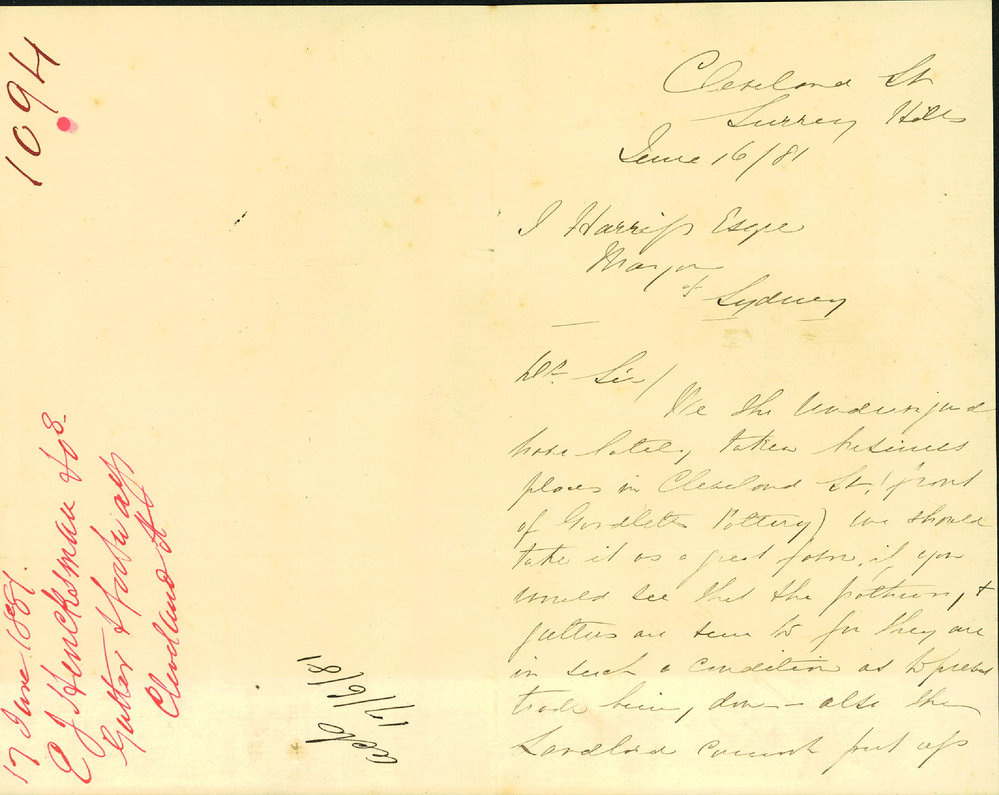 1094
17 June 1881.
E J Hinchesman & os.
Gutter & footway
Cleveland St
ackd
17/6/81
Cleveland St
Surrey Hills
June 16/81
J Harriss Esqre
Mayor
of
Sydney
Dr. Sir/
We the Undersigned
have lately taken business
places in Cleveland St, (front
of Gordletts Pottery) we should
take it as a great favor, if you
would see that the pathway, &
gutters are seen to for they are
in such a condition as to prevent
trade being done – also the
Landlord cannot put up